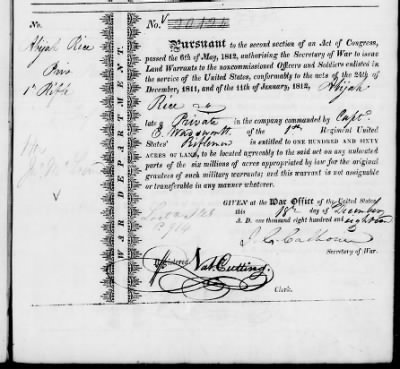 No.
Abijah Rice
Priv
1st Rifle
WAR DEPARTMENT.
No. 20124
Pursuant to the second section of an Act of Congress,
passed the 6th of May, 1812, authorising the Secretary of War to issue
Land Warrants to the noncommissioned Officers and Soldiers enlisted in
the service of the United States, conformably to the acts of the 24th of
December, 1811, and of the 11th of January, 1812, Abijah
Rice
late a Private in the company commanded by Capt.
E. Wadsworth of the 1st Regiment United
States' Riflemen is entitled to ONE HUNDRED AND SIXTY
ACRES OF LAND, to be located agreeably to the said act on any unlocated
parts of the six millions of acres appropriated by law for the original
grantees of such military warrants; and this warrant is not assignable
or transferable in any manner whatever.
GIVEN at the War Office of the United States
this 18th day of December
A. D. one thousand eight hundred and eighteen
J. C. Calhoun
Secretary of War.
Registered Nat Cutting.
Clerk.